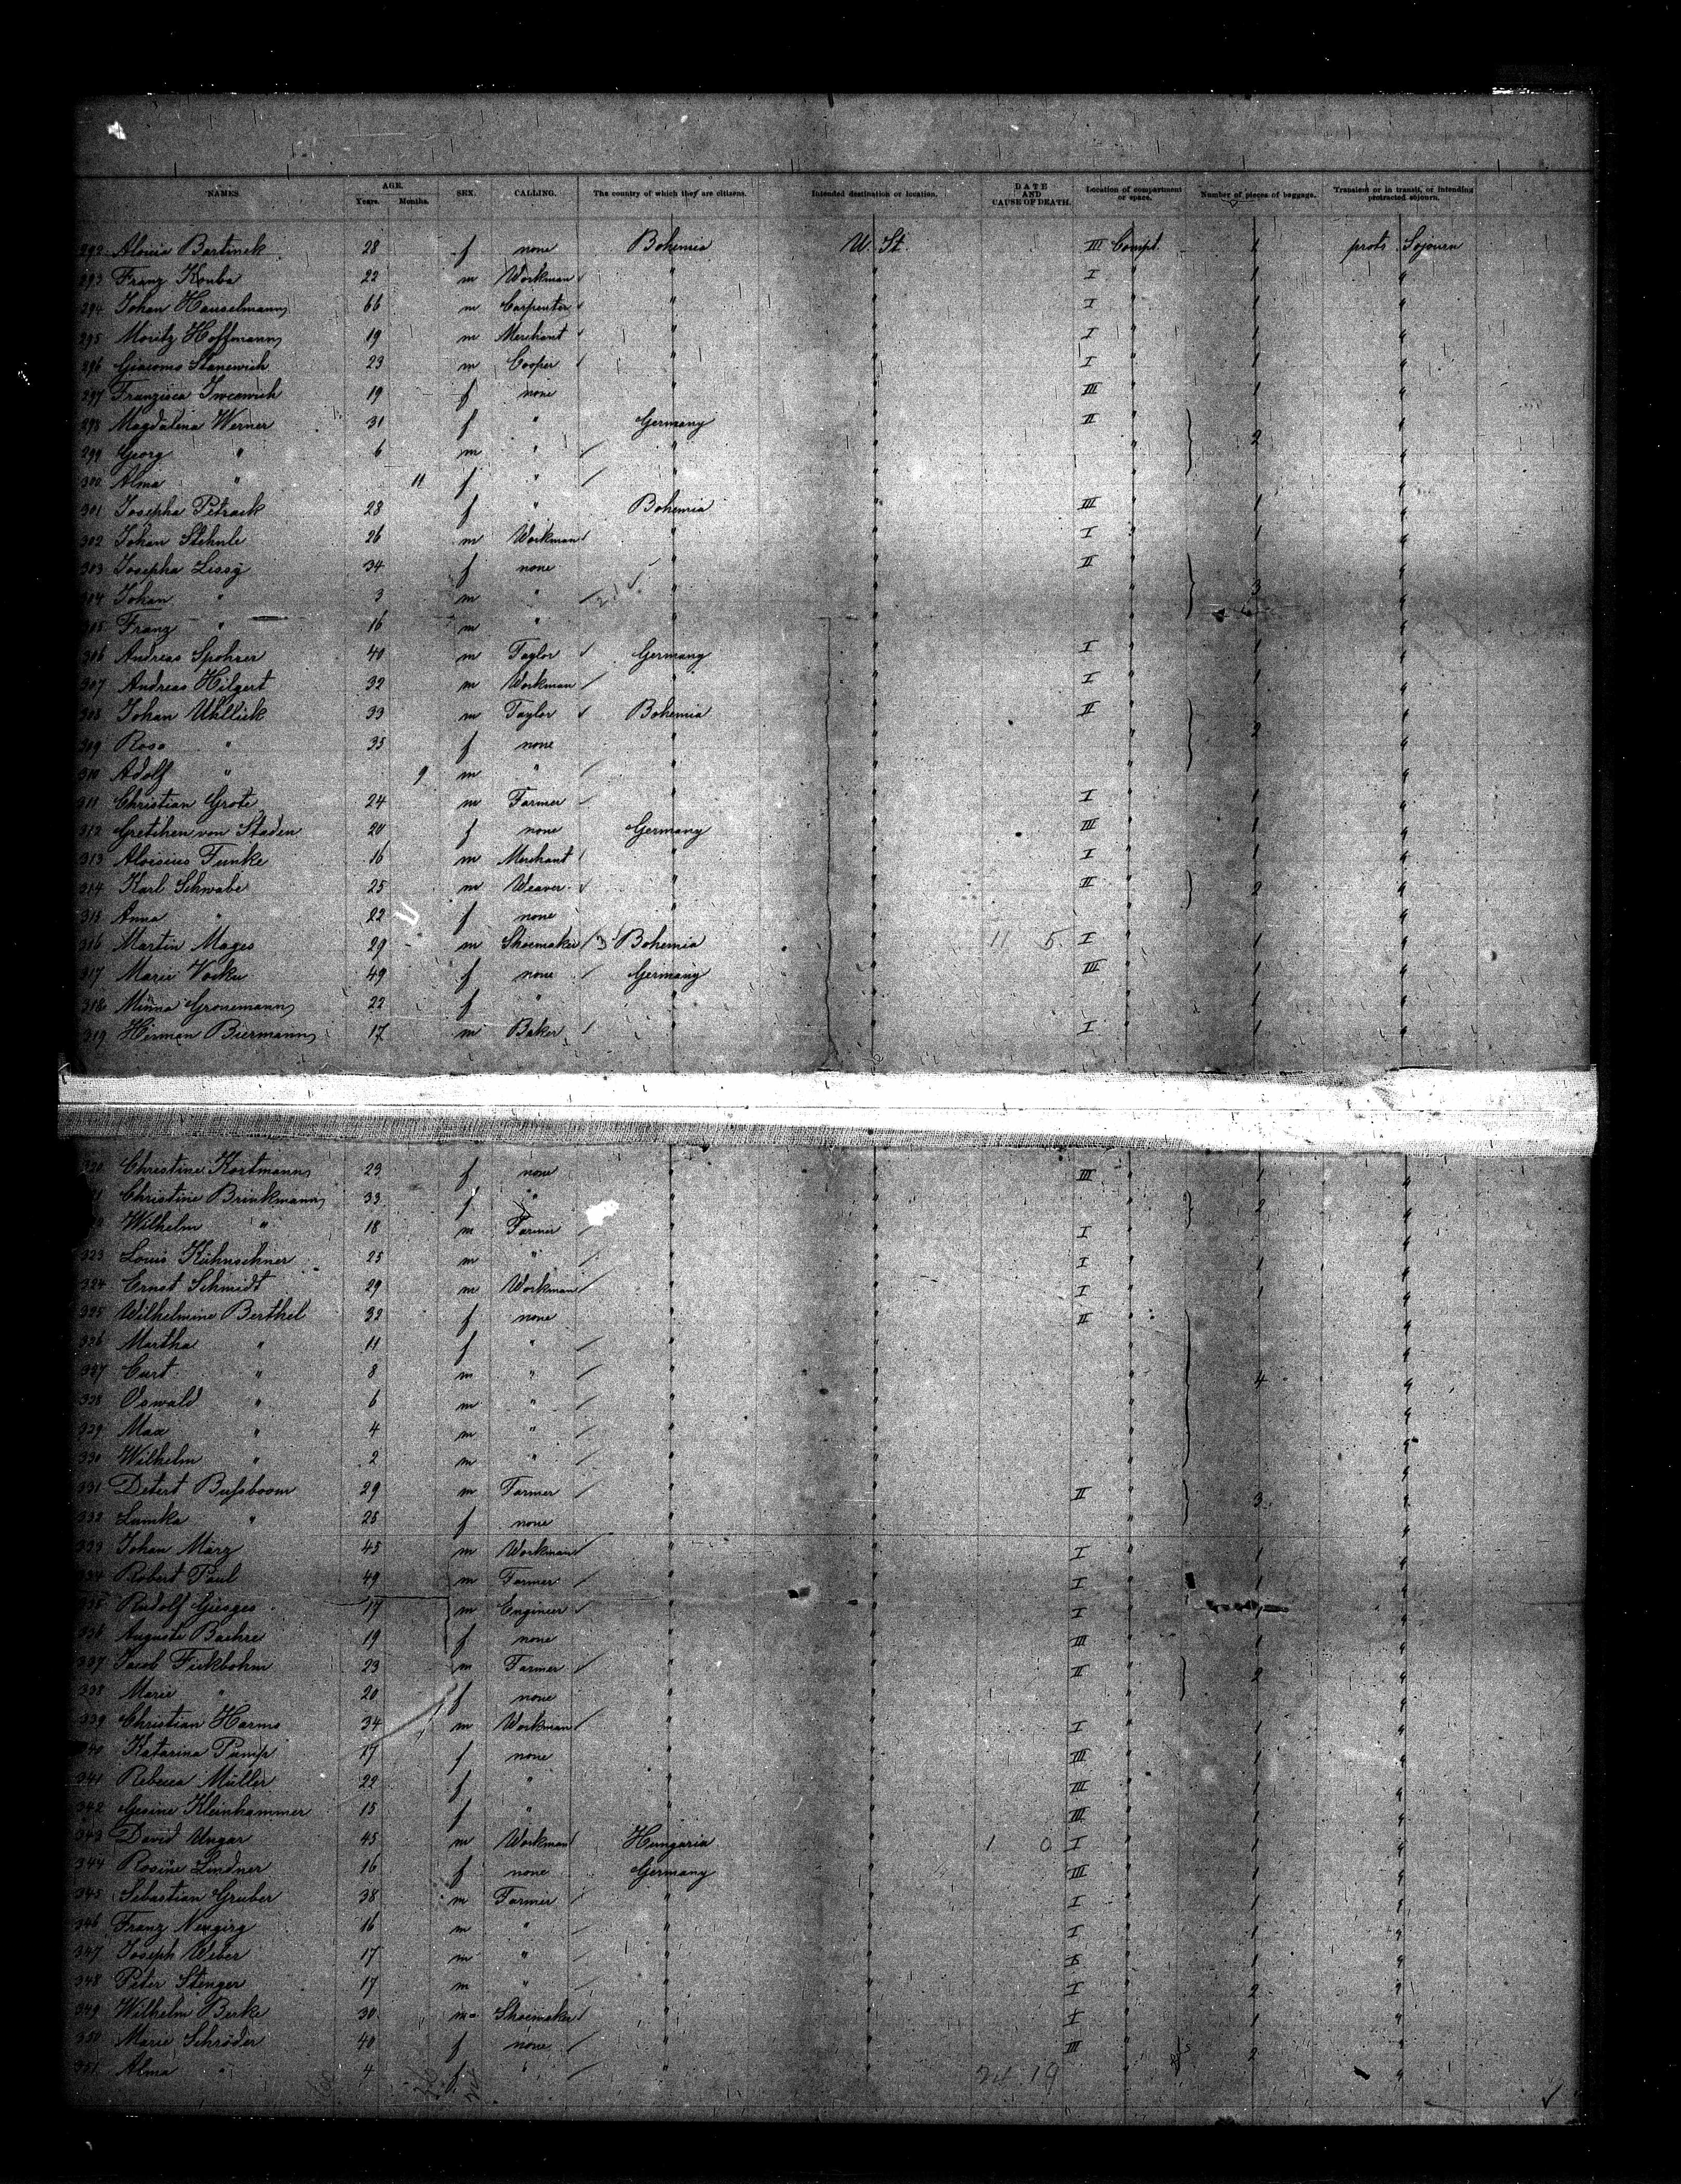 NAMES AGE. Years. Months. SEX. CALLING. The country of which they are citizens. Intended destination or location. DATE AND CAUSE OF DEATH. Location of compartment or space. Number of pieces of baggage. Transient or in transit, or intending protracted sojourn.
292 Aloisia Bartinek 28 f none Bohemia U. St. III Compt. 1 prots Sojourn
293 Franz Kouba 22 m Workman " " I " 1 "
294 Johan Hauselmann 66 m Carpenter " " I " 1 "
295 Moritz Hoffmann 19 m Merchant " " I " 1 "
296 Giacomo Stanewich 23 m Cooper " " I " 1 "
297 Franzisca 19 f none " " III " 1 "
298 Magdalina Werner 31 f " Germany " II "
299 Georg " 6 m " " " " 2 "
300 Alma " 11 f " " " "
301 Josepha Petracek 23 f " Bohemia " III " 1 "
302 Johan Stehule 26 m Workman " " I " 1 "
303 Josepha Lissy 34 f none " " II " "
304 Johan " 3 m " " " " 3 "
305 Franz " 16 m " " " "
306 Andreas Spohrer 40 m Taylor Germany " I " 1 "
307 Andreas Hilgert 32 m Workman " " I " 1 "
308 Johan Uhllick 33 m Taylor Bohemia " II " "
309 Rosa " 35 f none " " " 2 "
310 Adolf " 9 m " " " " "
311 Christian Grote 24 m Farmer " " I " 1 "
312 Gretchen von Staden 20 f none Germany " III " 1 "
313 Aloisius Funke 16 m Merchant " " I " 1 "
314 Karl Schwabe 25 m Weaver " " II " 2 "
315 Anna " 22 f none " " " "
316 Martin Mages 29 m Shoemaker Bohemia " 11 5 I " 1 "
317 Marie 49 f none Germany " III " 1 "
318 Minna Gronemann 22 f " " " " 1 "
319 Herman Biermann 17 m Baker " " I " 1 "
320 Christine Kortmann 23 f none " " III " 1 "
Christine Brinkmann 33 f " " " " 2 "
Wilhelm " 18 m Farmer " " I " "
323 Louis Kühnschner 25 m " " " I " 1 "
324 Ernst Schmidt 29 m Workman " " I " 1 "
325 Wilhelmine Berthel 32 f none " " II " "
326 Martha " 11 f " " " " "
327 Curt " 8 m " " " " 4 "
328 Oswald " 6 m " " " " "
329 Max " 4 m " " " " "
330 Wilhelm " 2 m " " " " "
331 Detert Bussboom 29 m Farmer " " II " 3 "
332 Lumka " 25 f none " " " "
333 Johan März 45 m Workman " " I " 1 "
334 Robert Paul 49 m Farmer " " I " 1 "
335 Rudolf Giesges 17 m Engineer " " I " 1 "
336 Auguste Baehre 19 f none " " III " 1 "
337 Jacob Fickbohm 23 m Farmer " " II " 2 "
338 Marie " 20 f none " " " "
339 Christian Harms 34 m Workman " " I " 1 "
340 Katarina Pump 17 f none " " III " 1 "
341 Rebecca Müller 22 f " " " III " 1 "
342 Gesine Kleinhammer 15 f " " " III " 1 "
343 David Ungar 45 m Workman Hungaria " 1 0 I " 1 "
344 Rosine Lindner 16 f none Germany " III " 1 "
345 Sebastian Gruber 38 m Farmer " " I " 1 "
346 Franz Neugirg 16 m " " " I " 1 "
347 Joseph Weber 17 m " " " I " 1 "
348 Peter Stenger 17 m " " " I " 2 "
349 Wilhelm Berke 30 m Shoemaker " " I " 1 "
350 Marie Schröder 40 f none " " III " 2 "
351 Alma " 4 f " " " " "